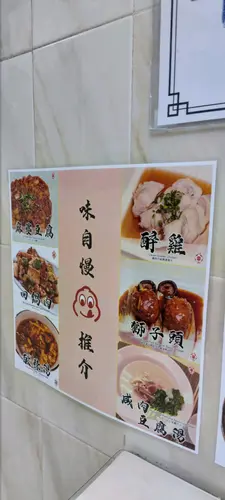 味自慢
推介
麻婆豆腐
回鍋肉
酸辣湯
醉雞
獅子頭
咸肉
豆腐湯